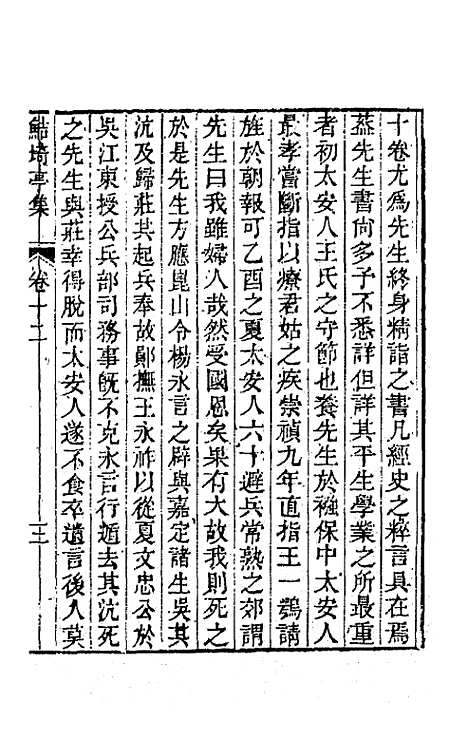 十卷尤爲先生終身精詣之書凡經史之粹言具在焉
蓋先生書尙多予不悉詳但詳其平生學業之所最重
者初太安人王氏之守節也養先生於襁保中太安人
最孝嘗斷指以療君姑之疾崇禎九年直指王一鶚請
旌於朝報可乙酉之夏太安人六十避兵常熟之郊謂
先生曰我雖婦人哉然受國恩矣果有大故我則死之
於是先生方應崑山令楊永言之辟與嘉定諸生吳其
沆及歸莊共起兵奉故鄖撫王永祚以從夏文忠公於
吳江東授公兵部司務事旣不克永言行遁去其沆死
之先生與莊幸得脫而太安人遂不食卒遺言後人莫
鮚埼亭集 卷十二 三